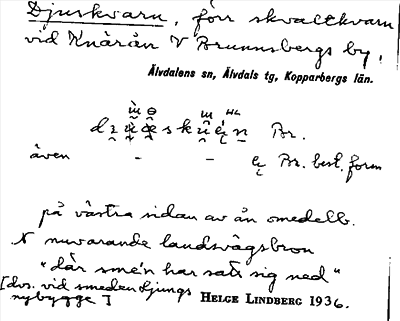 Djuskvarn, förr skvaltkvarn
vid Knärån V Brunnsbergs by.
Älvdalens sn, Älvdals tg, Kopparbergs län.
Br.
även - - Br. best. form
på västra sidan av ån omedelb.
N nuvarande landsvägsbron
"där sme'n har satt sig ned"
[dvs. vid smeden Ljungs
nybygge]
HELGE LINDBERG 1936.